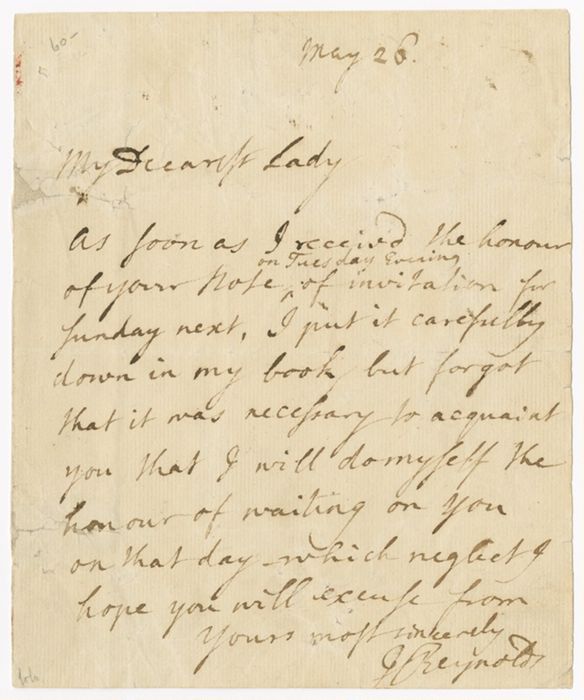 60-
May 26.
My Dearest Lady
As soon as I received the honour
on Tuesday Evening
of your Note ^ of invitation for
sunday next, I put it carefully
down in my book but forgot
that it was necessary to acquaint
you that I will do myself the
honour of waiting on you
on that day which neglect I
hope you will excuse from
Yours most sincerely
J Reynolds